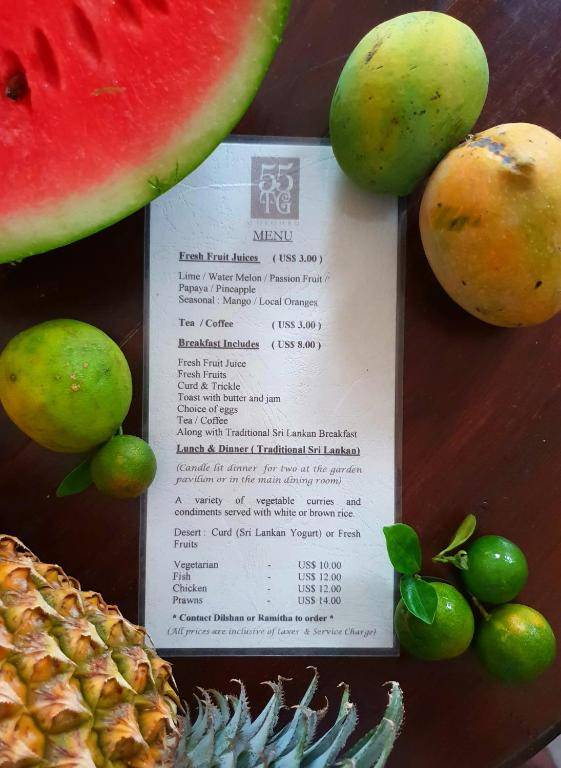 55
TG
COLOMBO
MENU
Fresh Fruit Juices ( US$ 3.00 )
Lime / Water Melon / Passion Fruit /
Papaya / Pineapple
Seasonal : Mango / Local Oranges
Tea / Coffee ( US$ 3.00 )
Breakfast Includes ( US$ 8.00 )
Fresh Fruit Juice
Fresh Fruits
Curd & Trickle
Toast with butter and jam
Choice of eggs
Tea / Coffee
Along with Traditional Sri Lankan Breakfast
Lunch & Dinner ( Traditional Sri Lankan)
(Candle lit dinner for two at the garden
pavilion or in the main dining room)
A variety of vegetable curries and
condiments served with white or brown rice.
Desert : Curd (Sri Lankan Yogurt) or Fresh
Fruits
Vegetarian - US$ 10.00
Fish - US$ 12.00
Chicken - US$ 12.00
Prawns - US$ 14.00
* Contact Dilshan or Ramitha to order *
(All prices are inclusive of taxes & Service Charge)